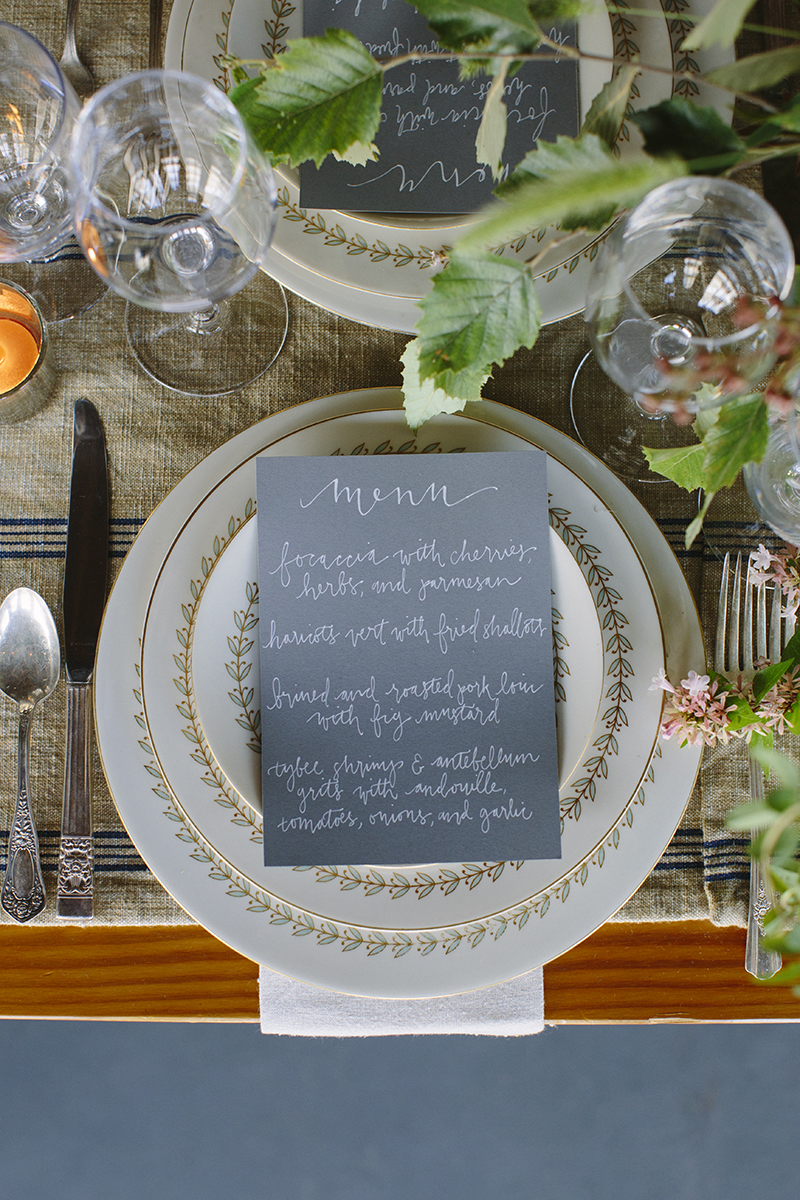 menu
focaccia with cherries,
herbs, and parmesan
haricots vert with fried shallots
brined and roasted pork loin
with fig mustard
tybee shrimps & antebellum
grits with andouille,
tomatoes, onions, and garlic
menu
focaccia with
herbs, and pa
with fried